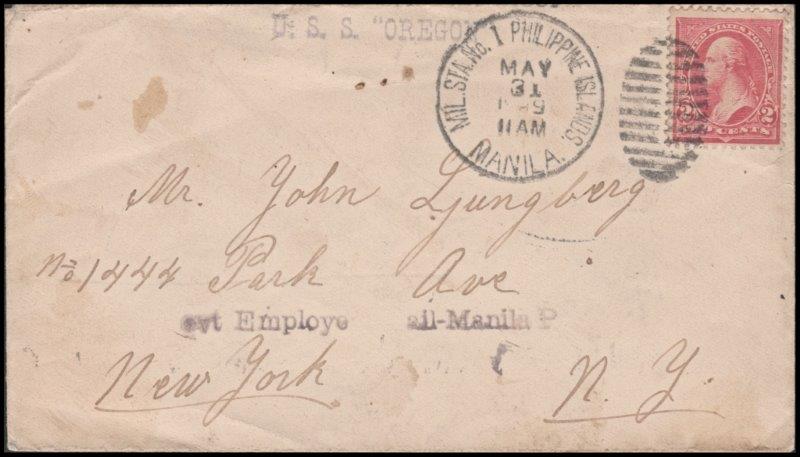 U. S. S. "OREGON
MIL. STA. No. 1 PHILIPPINE ISLANDS.
MAY
31
11 AM
MANILA.
UNITED STATES POSTAGE
2 CENTS 2
Mr. John Ljungberg
No 1444 Park Ave
ovt Employe ail-Manila P
New York N. Y.